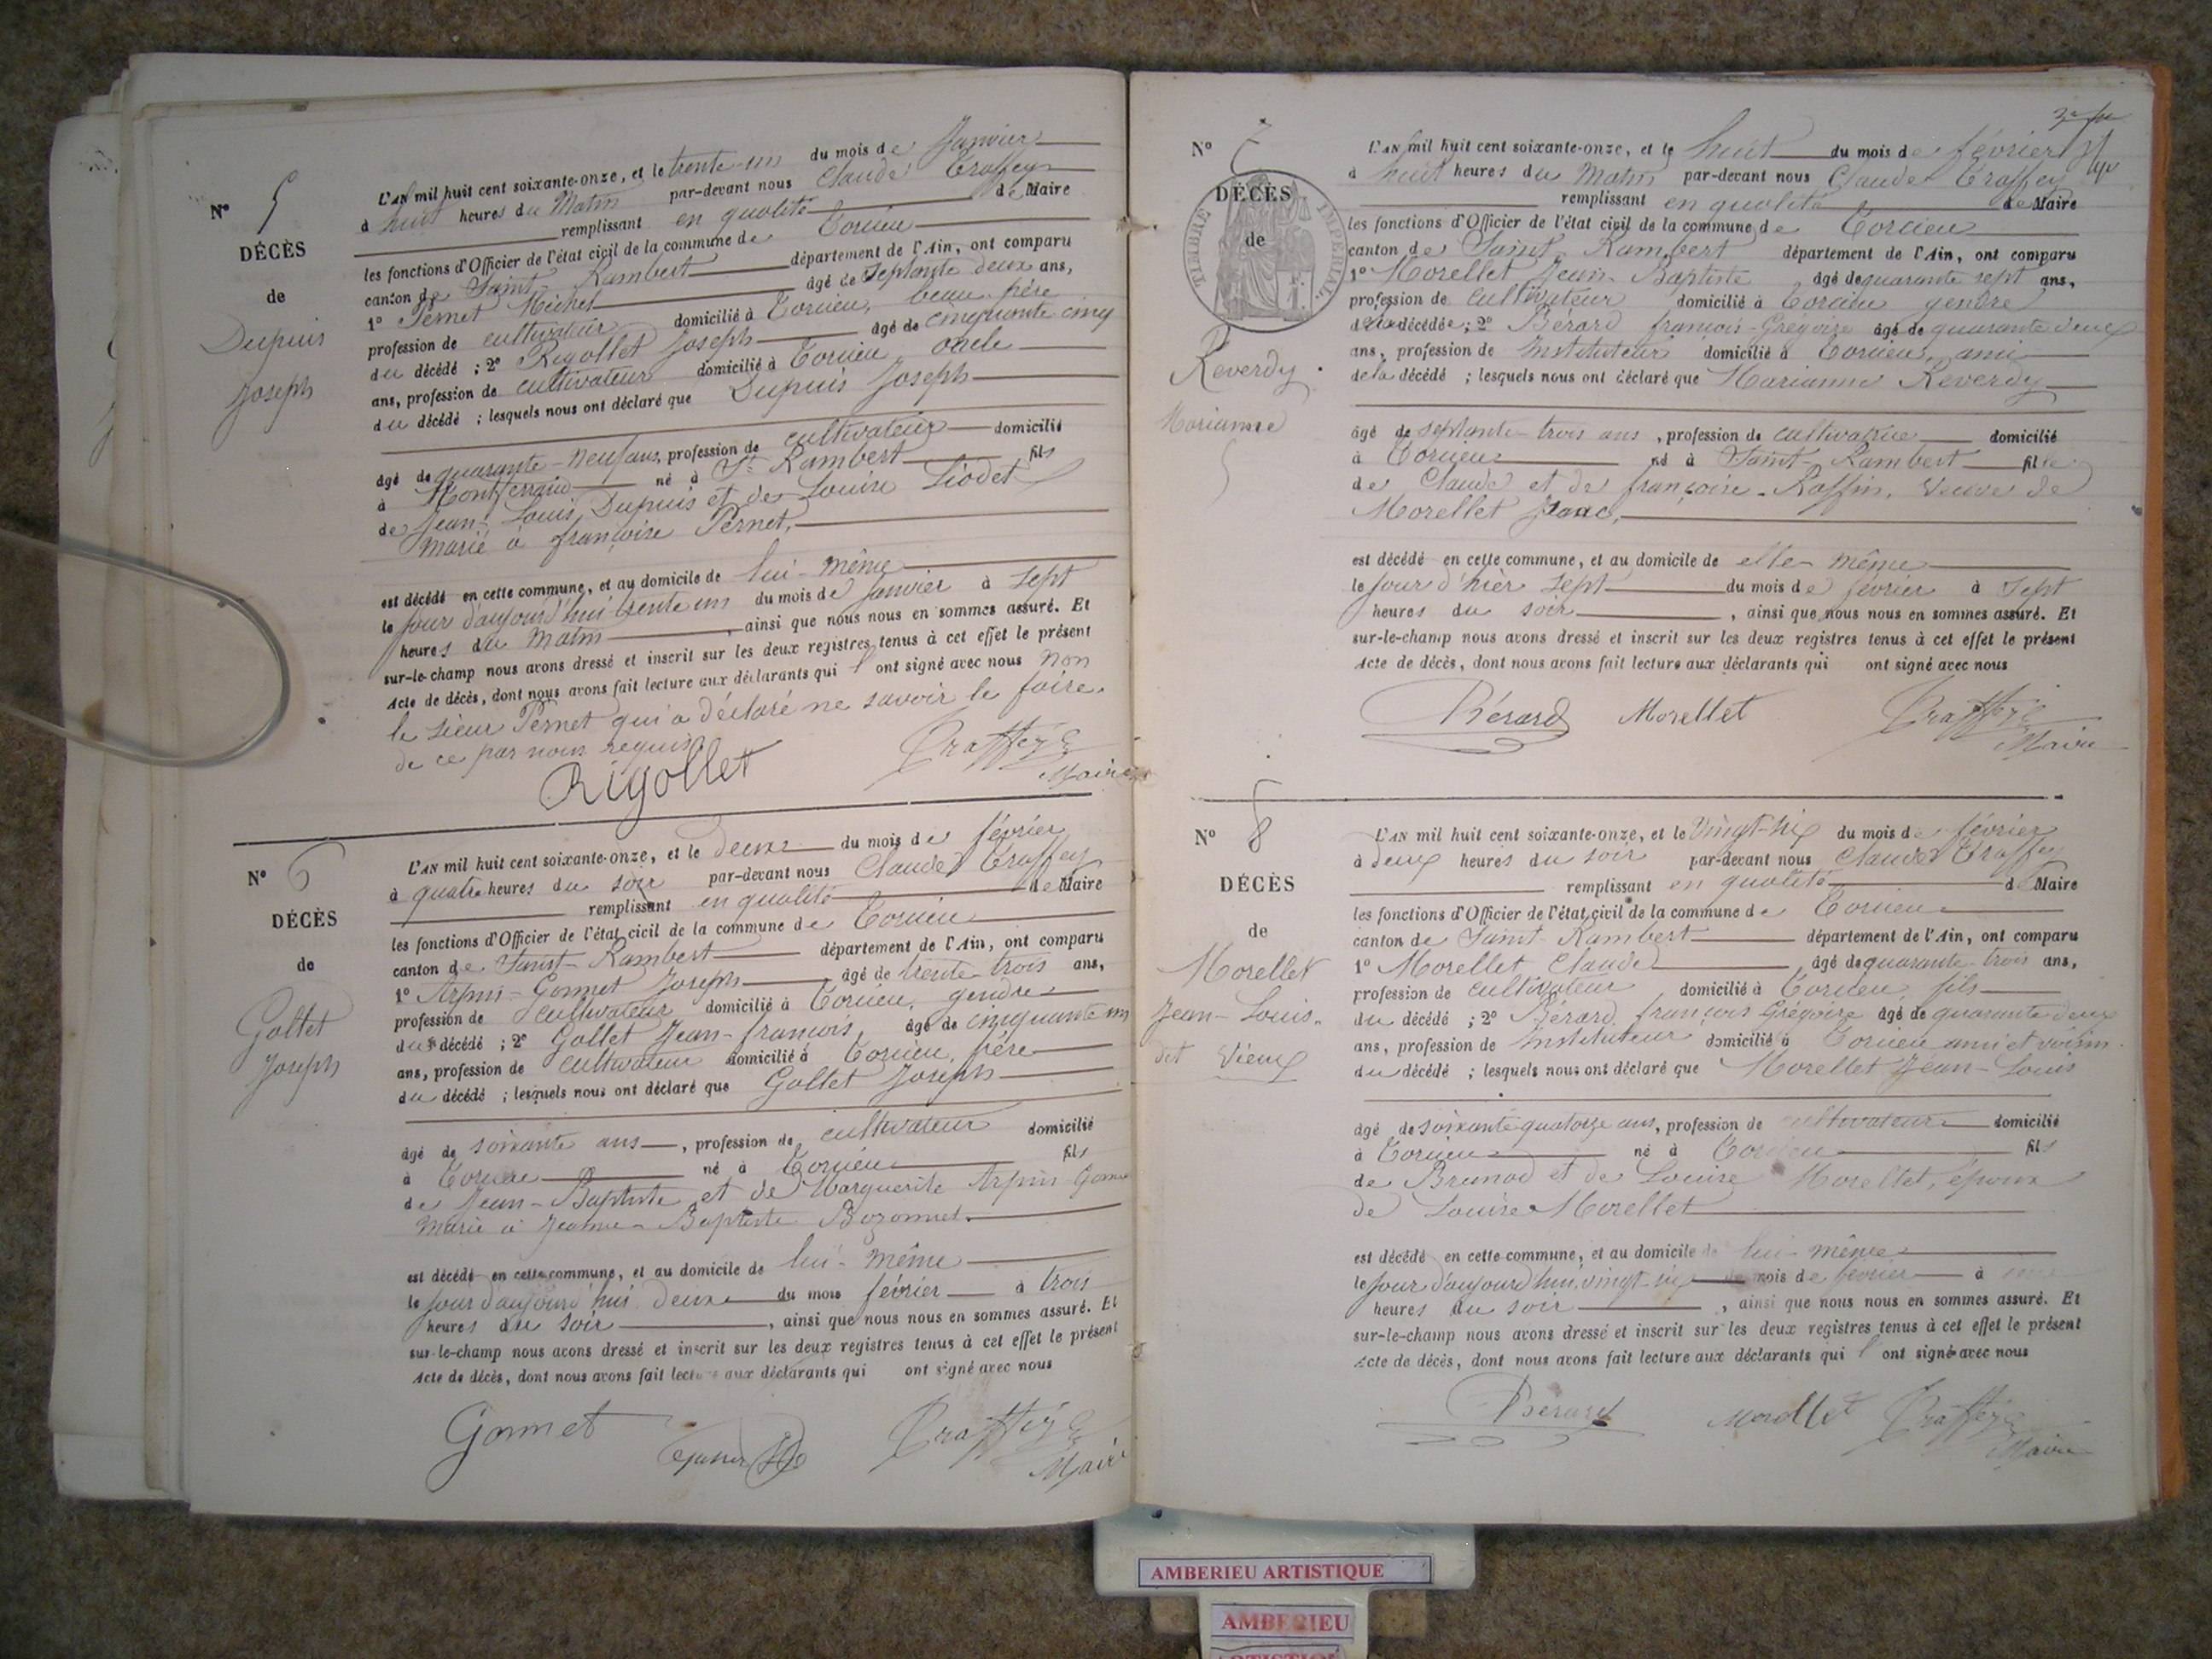 N° 5
DÉCÈS
de
Dupuis
Joseph
L'AN mil huit cent soixante-onze, et le trente-un du mois de Janvier
à huit heures du Matin par-devant nous Claude Traffey
remplissant en qualité de Maire
les fonctions d'Officier de l'état civil de la commune de Torcieu
canton de Saint-Rambert département de l'Ain, ont comparu
1° Pernet Michel âgé de septante deux ans,
profession de cultivateur domicilié à Torcieu, beau-père
du décédé ; 2° Rigollet Joseph âgé de cinquante cinq
ans, profession de cultivateur domicilié à Torcieu oncle
du décédé ; lesquels nous ont déclaré que Dupuis Joseph
âgé de quarante-neuf ans, profession de cultivateur domicilié
à Montferrand né à St Rambert fils
de Jean-Louis Dupuis et de Louise Liodet
marié à françoise Pernet,
est décédé en cette commune, et au domicile de lui-même
le jour d'aujourd'hui trente un du mois de Janvier à sept
heures du Matin, ainsi que nous nous en sommes assuré. Et
sur-le-champ nous avons dressé et inscrit sur les deux registres tenus à cet effet le présent
Acte de décès, dont nous avons fait lecture aux déclarants qui l'ont signé avec nous non
le sieur Pernet qui a déclaré ne savoir le faire.
de ce par nous requis
Rigollet Traffey
Maire
N° 6
DÉCÈS
de
Gollet
Joseph
L'AN mil huit cent soixante-onze, et le deux du mois de février
à quatre heures du soir par-devant nous Claude Traffey
remplissant en qualité de Maire
les fonctions d'Officier de l'état civil de la commune de Torcieu
canton de Saint-Rambert département de l'Ain, ont comparu
1° Arpin-Gonnet Joseph âgé de trente-trois ans,
profession de cultivateur domicilié à Torcieu, gendre
du décédé ; 2° Gollet Jean-françois, âgé de cinquante un
ans, profession de cultivateur domicilié à Torcieu, frère
du décédé ; lesquels nous ont déclaré que Gollet Joseph
âgé de soixante ans, profession de cultivateur domicilié
à Torcieu né à Torcieu fils
de Jean-Baptiste et de Marguerite Arpin Gonnet
marié à Jeanne-Baptiste Bozonnet.
est décédé en cette commune, et au domicile de lui-même
le jour d'aujourd'hui deux du mois février à trois
heures du soir, ainsi que nous nous en sommes assuré. Et
sur-le-champ nous avons dressé et inscrit sur les deux registres tenus à cet effet le présent
Acte de décès, dont nous avons fait lecture aux déclarants qui ont signé avec nous
Gonnet Traffey
Maire
N° 7
DÉCÈS
de
TIMBRE IMPÉRIAL
Reverdy
Marianne
L'AN mil huit cent soixante-onze, et le huit du mois de février
à huit heures du Matin par-devant nous Claude Traffey
remplissant en qualité de Maire
les fonctions d'Officier de l'état civil de la commune de Torcieu
canton de Saint-Rambert département de l'Ain, ont comparu
1° Morellet Jean-Baptiste âgé de quarante sept ans,
profession de cultivateur domicilié à Torcieu gendre
de la décédée ; 2° Bérard françois-Grégoire âgé de quarante deux
ans, profession de Instituteur domicilié à Torcieu, ami
de la décédé ; lesquels nous ont déclaré que Marianne Reverdy
âgé de septante-trois ans, profession de cultivatrice domicilié
à Torcieu né à Saint-Rambert fille
de Claude et de françoise Raffin, Veuve de
Morellet
est décédé en cette commune, et au domicile de elle-même
le jour d'hier sept du mois de février à sept
heures du soir, ainsi que nous nous en sommes assuré. Et
sur-le-champ nous avons dressé et inscrit sur les deux registres tenus à cet effet le présent
Acte de décès, dont nous avons fait lecture aux déclarants qui ont signé avec nous
Bérard Morellet Traffey
Maire
N° 8
DÉCÈS
de
Morellet
Jean-Louis.
dit Vieux
L'AN mil huit cent soixante-onze, et le Vingt-six du mois de février
à deux heures du soir par-devant nous Claude Traffey
remplissant en qualité de Maire
les fonctions d'Officier de l'état civil de la commune de Torcieu
canton de Saint-Rambert département de l'Ain, ont comparu
1° Morellet Claude âgé de quarante-trois ans,
profession de cultivateur domicilié à Torcieu, fils
du décédé ; 2° Bérard françois Grégoire âgé de quarante deux
ans, profession de Instituteur domicilié à Torcieu ami et voisin
du décédé ; lesquels nous ont déclaré que Morellet Jean-Louis
âgé de soixante quatorze ans, profession de cultivateur domicilié
à Torcieu né à Torcieu fils
de Brunod et de Louise Morellet, époux
de Louise Morellet
est décédé en cette commune, et au domicile de lui-même
le jour d'aujourd'hui vingt-six mois de février à
heures du soir, ainsi que nous nous en sommes assuré. Et
sur-le-champ nous avons dressé et inscrit sur les deux registres tenus à cet effet le présent
Acte de décès, dont nous avons fait lecture aux déclarants qui l'ont signé avec nous
Bérard Morellet Traffey
Maire
AMBERIEU ARTISTIQUE
AMBERIEU
ARTISTIQUE